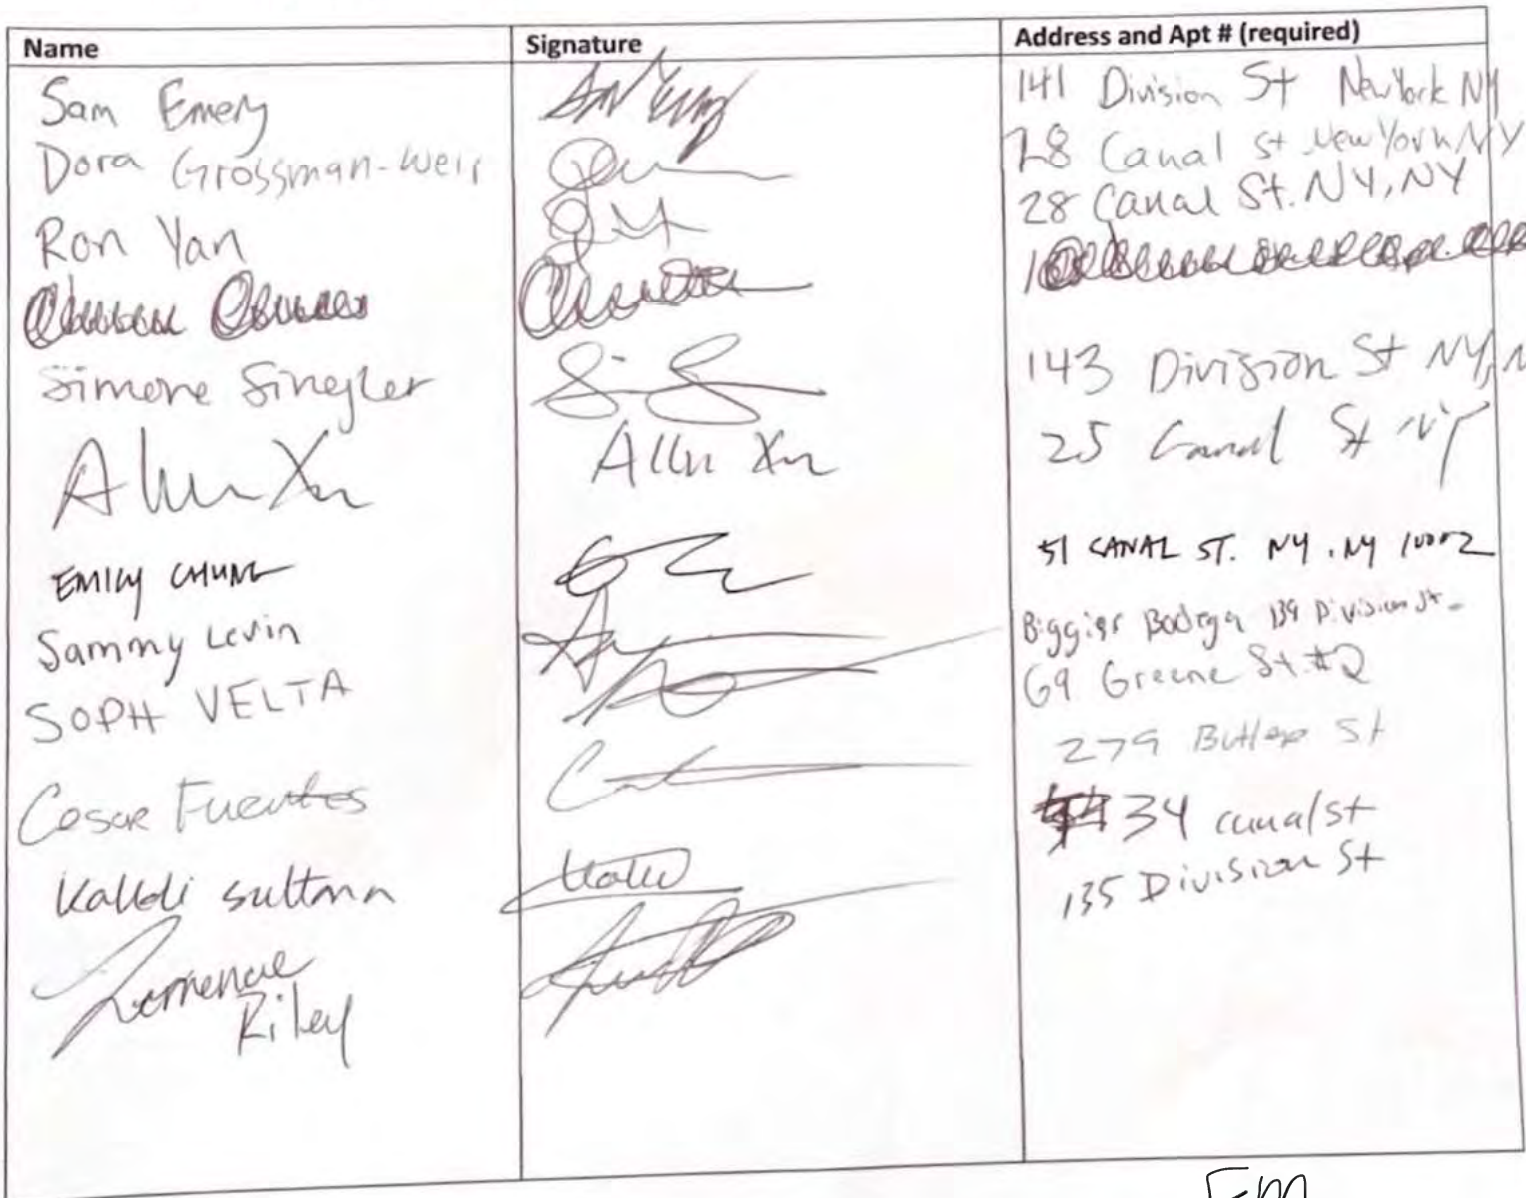 Name Signature Address and Apt # (required)
Sam Emery 141 Division St New York NY
Dora Grossman-Weir 28 Canal St New York, NY
Ron Yan 28 Canal St. NY, NY
Simone 143 Division St NY, N
Allen Xu Allen Xu 25 Canal St NY
EMILY CHUNG 51 CANAL ST. NY, NY 10002
Sammy Levin Biggier Bodega 139 Division St.
SOPH VELTA 69 Greene St. #2
279 Butler St
Cesar Fuentes 34 canal st
sultana 135 Division St
Riley
Em